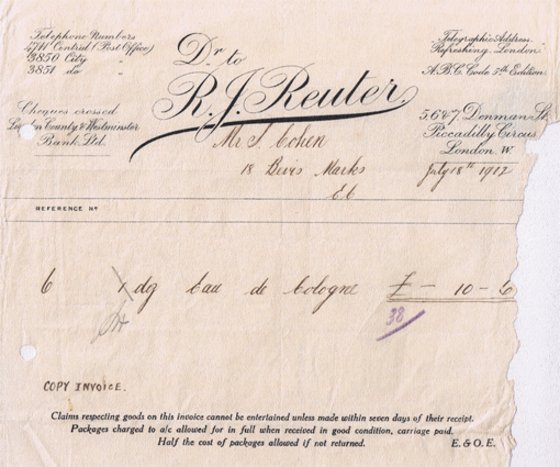 Telephone Numbers
4711 Central (Post Office)
3850 City "
3851 do "
Dr. to
R. J. Reuter.
Telegraphic Address.
"Refreshing. London"
A.B.C. Code 5th Edition.
Cheques crossed
London County & Westminster
Bank Ltd.
5.6 & 7. Denman St.
Piccadilly Circus
London. W.
Mr S. Cohen
18 Bevis Marks
EC
July 18th 1912
REFERENCE No
6 1 dz Eau de Cologne £ - 10 - 6
38
COPY INVOICE.
Claims respecting goods on this invoice cannot be entertained unless made within seven days of their receipt.
Packages charged to a/c allowed for in full when received in good condition, carriage paid.
Half the cost of packages allowed if not returned.
E. & O. E.